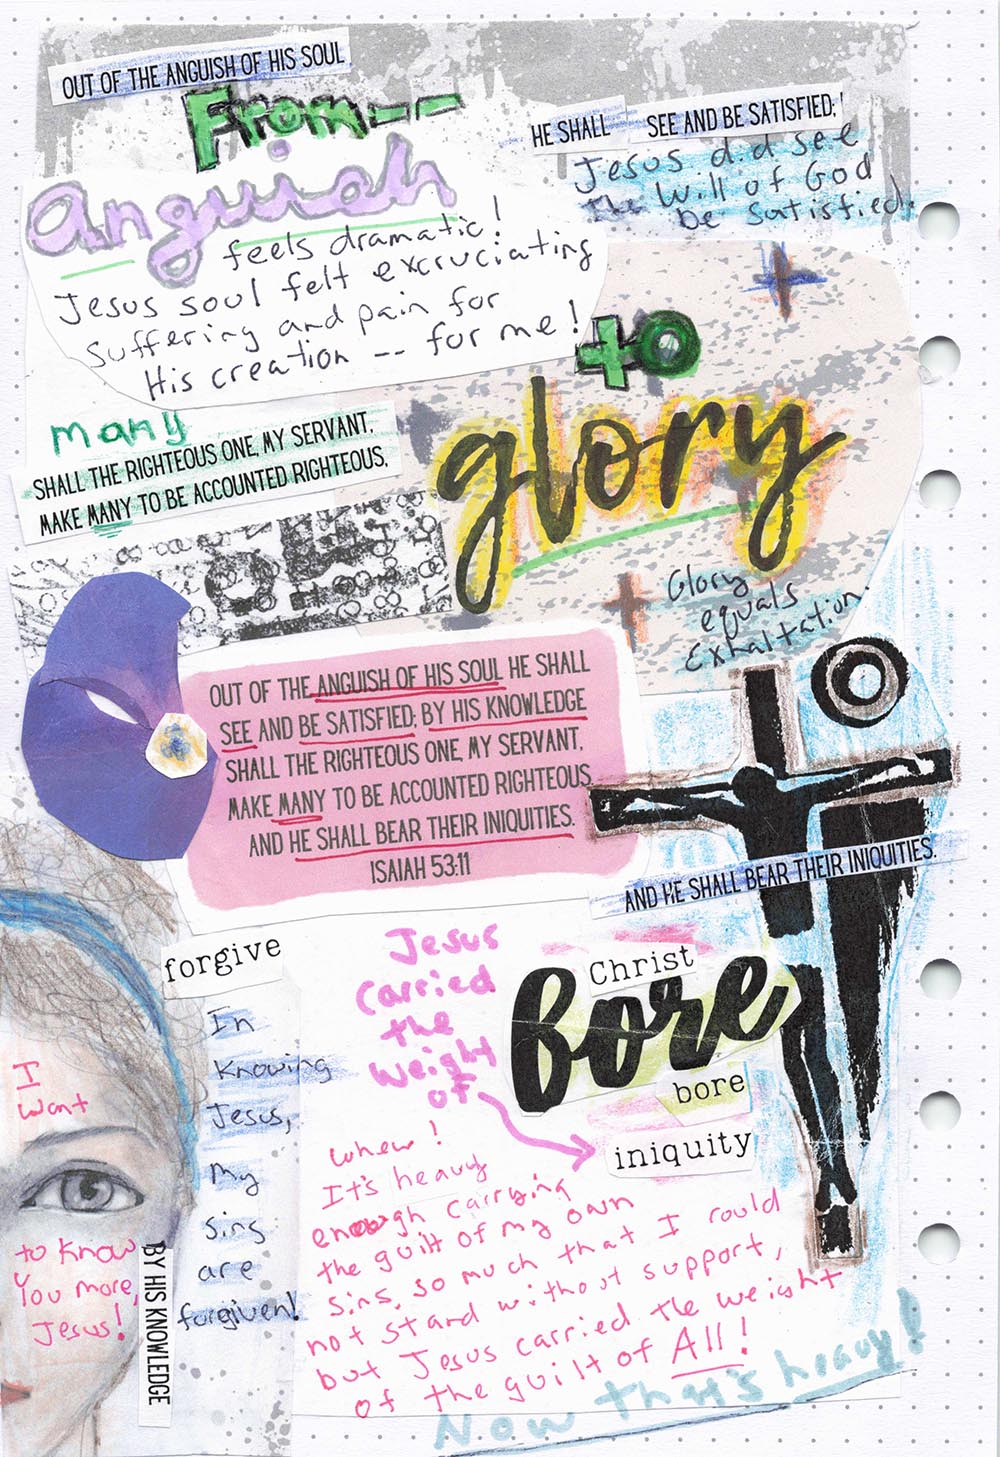 OUT OF THE ANGUISH OF HIS SOUL
From---
Anguish
feels dramatic!
Jesus soul felt excruciating
suffering and pain for
His creation -- for me!
HE SHALL SEE AND BE SATISFIED;
Jesus did see
the Will of God
be satisfied.
to
glory
Glory
equals
Exhaltation.
many
SHALL THE RIGHTEOUS ONE, MY SERVANT,
MAKE MANY TO BE ACCOUNTED RIGHTEOUS,
OUT OF THE ANGUISH OF HIS SOUL HE SHALL
SEE AND BE SATISFIED; BY HIS KNOWLEDGE
SHALL THE RIGHTEOUS ONE, MY SERVANT,
MAKE MANY TO BE ACCOUNTED RIGHTEOUS,
AND HE SHALL BEAR THEIR INIQUITIES.
ISAIAH 53:11
AND HE SHALL BEAR THEIR INIQUITIES.
forgive
In
Knowing
Jesus,
My
sins
are
forgiven!
I
want
to know
You more,
Jesus!
BY HIS KNOWLEDGE
Jesus
carried
the
weight
of
Christ
Bore
bore
iniquity
whew!
It's heavy
enough carrying
the guilt of my own
sins, so much that I could
not stand without support,
but Jesus carried the weight
of the guilt of All!
Now that's heavy!